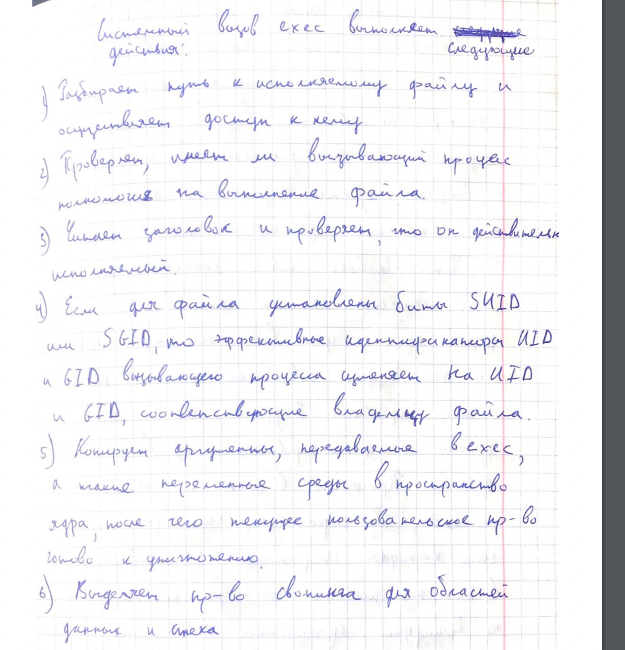 Системный вызов exec выполняет
действия: следующие
1) Разбирает путь к исполняемому файлу и
осуществляет доступ к нему
2) Проверяет, имеет ли вызывающий процесс
полномочия на выполнение файла.
3) Читает заголовок и проверяет, что он действительн
исполняемый.
4) Если для файла установлены биты SUID
или SGID, то эффективные идентификаторы UID
и GID вызывающего процесса изменяет на UID
и GID, соответствующие владельцу файла.
5) Копирует аргументы, передаваемые в exec,
а также переменные среды в пространство
ядра, после чего текущее пользовательское пр-во
готово к уничтожению.
6) Выделяет пр-во свопинга для областей
данных и стека